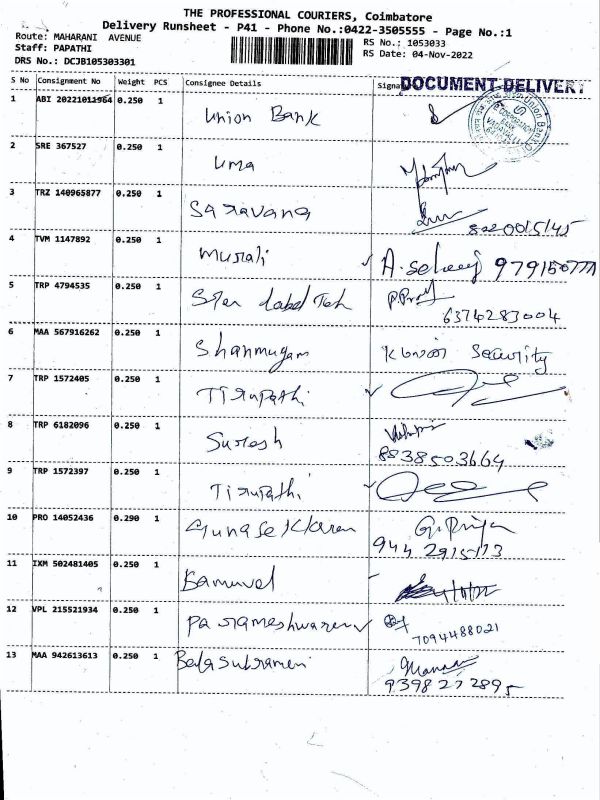 THE PROFESSIONAL COURIERS, Coimbatore
Delivery Runsheet - P41 - Phone No.:0422-3505555 - Page No.:1
Route: MAHARANI AVENUE
RS No.: 1053033
Staff: PAPATHI
RS Date: 04-Nov-2022
DRS No.: DCJB105303301
DOCUMENT DELIVERY
S No Consignment No Weight PCS Consignee Details
1 ABI 20221011964 0.250 1 Union Bank
2 SRE 367527 0.250 1 Uma
3 TRZ 140965877 0.250 1 Saravana
4 TVM 1147892 0.250 1 Murali
5 TRP 4794535 0.250 1 Star Label Teh
6374283004
6 MAA 567916262 0.250 1 Shanmugam Security
7 TRP 1572405 0.250 1 Tirupathi
8 TRP 6182096 0.250 1 Suresh
8838503664
9 TRP 1572397 0.250 1 Tirupathi
10 PRO 14052436 0.290 1 Gunasekkaran G. Priya
944 2915113
11 IXM 502481405 0.250 1
12 VPL 215521934 0.250 1 Parameshwaren
7094488021
13 MAA 942613613 0.250 1 Balasubramani
9398272895